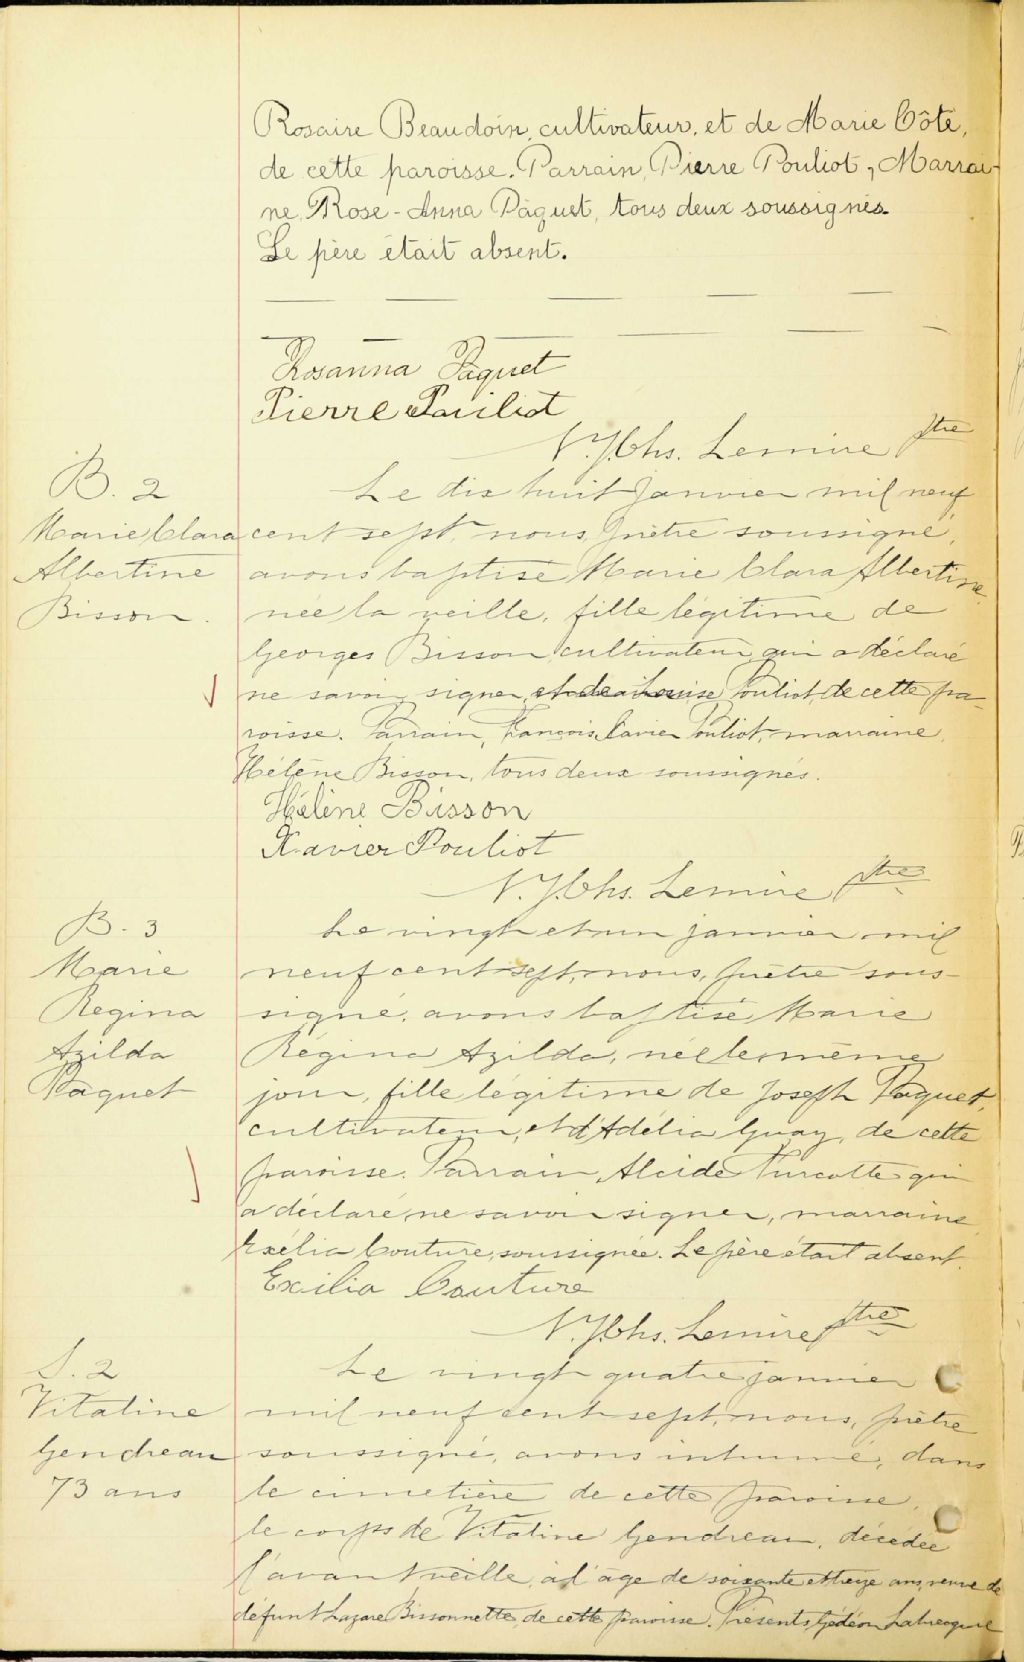 Rosaire Beaudoin, cultivateur, et de Marie Côté,
de cette paroisse. Parrain, Pierre Pouliot, Marrai-
ne, Rose-Anna Pâquet, tous deux soussignés.
Le père était absent.
Rosanna Paquet
Pierre Pouliot
N. J. Chs. Lemire ptre
B. 2
Marie Clara
Albertine
Bisson.
Le dix huit janvier mil neuf
cent sept, nous, prêtre soussigné,
avons baptisé Marie Clara Albertine,
née la veille, fille légitime de
Georges Bisson, cultivateur, qui a déclaré
ne savoir signer, et de Louise Pouliot, de cette pa-
roisse. Parrain, François Xavier Pouliot, marraine,
Hélène Bisson, tous deux soussignés.
Hélène Bisson
Xavier Pouliot
N. J. Chs. Lemire ptre
B. 3
Marie
Regina
Azilda
Paquet
Le vingt et un janvier mil
neuf cent sept, nous, prêtre sous-
signé, avons baptisé Marie
Régina Azilda, née le même
jour, fille légitime de Joseph Paquet,
cultivateur, et d'Adélia Guay, de cette
paroisse. Parrain, Alcide Turcotte qui
a déclaré ne savoir signer, marraine,
Exélia Couture, soussignée. Le père était absent.
Exilia Couture
N. J. Chs. Lemire ptre
S. 2
Vitaline
Gendreau
73 ans
Le vingt quatre janvier
mil neuf cent sept, nous, prêtre
soussigné, avons inhumé, dans
le cimetière de cette paroisse,
le corps de Vitaline Gendreau, décédée
l'avant veille, à l'âge de soixante et treize ans, veuve de
défunt Lazare Bissonnette, de cette paroisse. Présents, Gédéon Labrecque